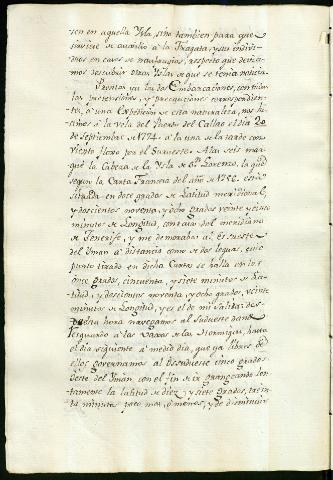 sen en aquella Ysla sino tambien para que
sirviese de auxilio a la Fragata, y sus indivi-
duos en caso de naufragio, respeto que devia-
mos descubrir otras Yslas de que se tenia noticia
Prontas ya las dos Embarcaciones, con todas
las prevenciones, y precauciones correspondien-
tes, á una Expedicion de esta naturaleza, nos hi-
cimos á la vela del Puerto del Callao el dia 20
de Septiembre de 1774 á la una de la tarde con
viento floxo por el Sueueste. A las seis mar-
qué la Cabeza de la Ysla de Sn Lorenzo, la que
segun la Carta Francesa del año de 1756 está
situada en doce grados de Latitud meridional,
y doscientos noventa, y ocho grados veinte y cinco
minutos de Longitud, contada del meridiano
de Tenerife, y me demoraba al Essueste
del Yman á distancia como de dos leguas, cuio
punto tirado en dicha Carta se halla en los
once grados, cincuenta, y siete minutos de La-
titud, y doscientos noventa, y ocho grados, veinte
minutos de Longitud, y es el de mi salida: des-
de esta hora navegamos al Sudueste dando
resguardo á las Baxas de las Hormigas, hasta
el dia siguiente á medio dia, que ya libres de
ellos governamos al Ossudueste cinco grados
Oeste del Yman, con el fin de ir grangeando len-
tamente la latitud de diez, y siete grados, trein-
ta minutos poco mas, ó menos, y de disminuir